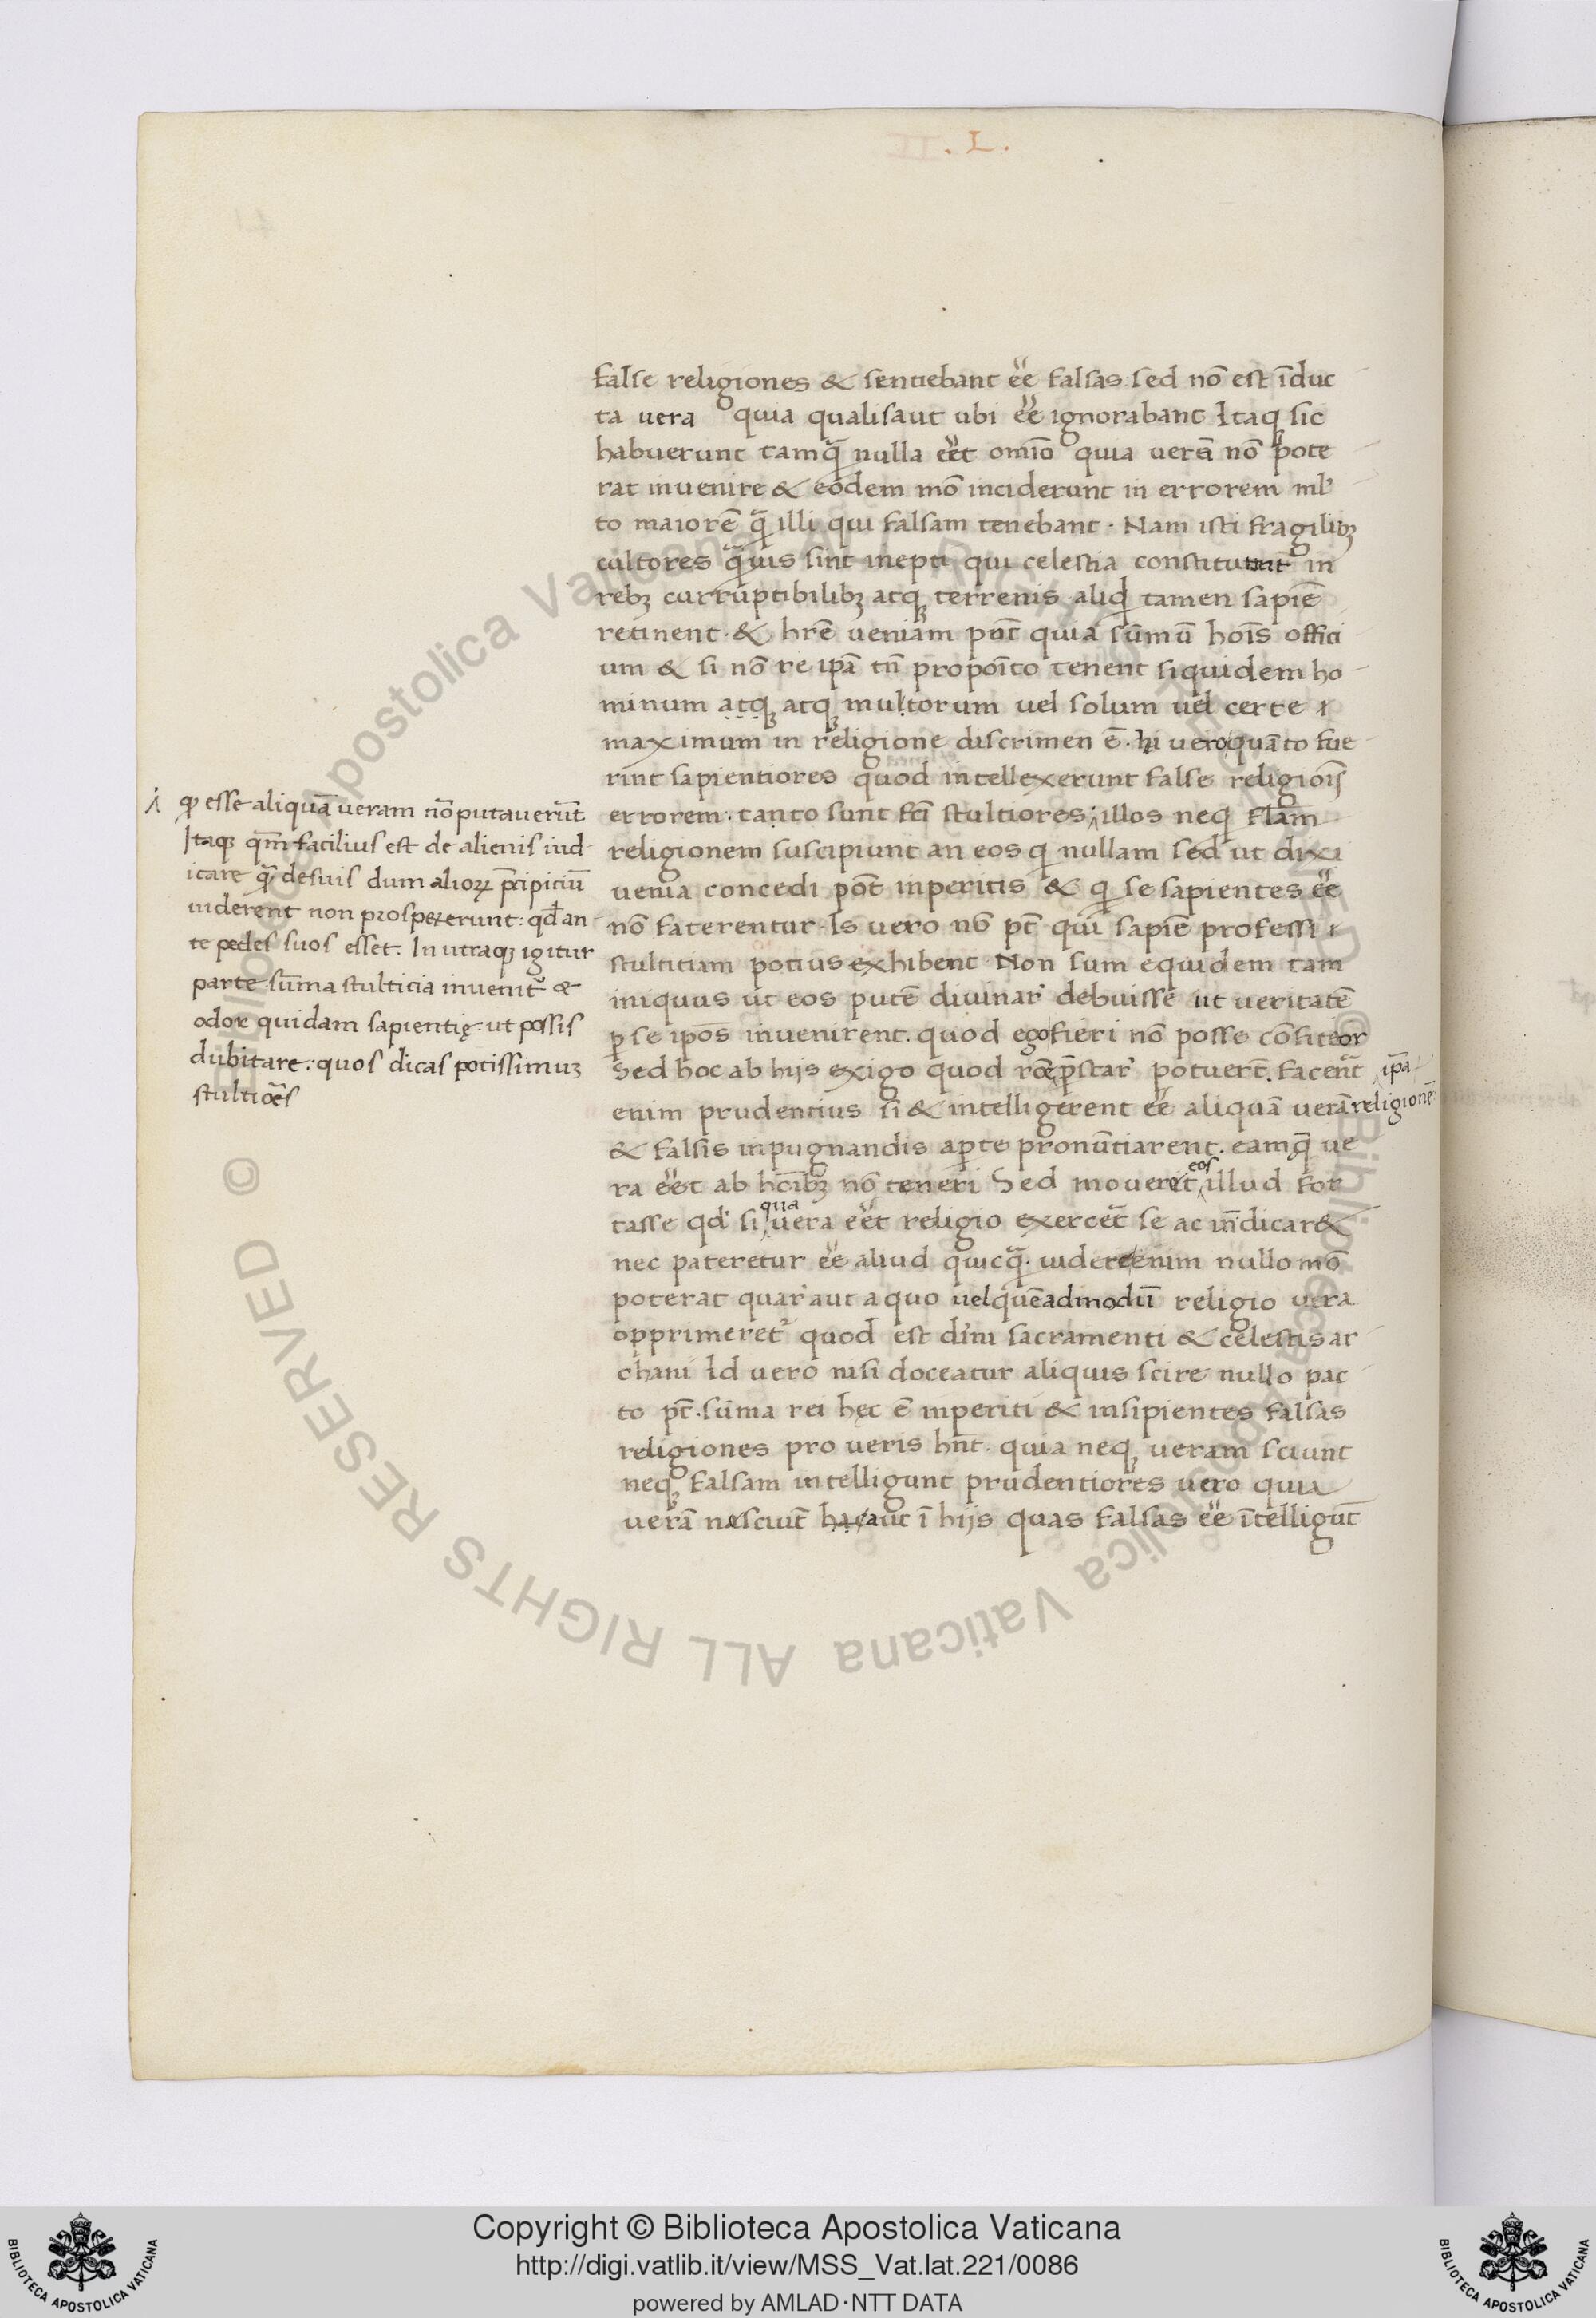 .L.II.
false religiones & sentiebant ẽe falsas: sed nõ est ĩduc
ta vera quia qualisaut ubi ẽe ignorabant Itaqꝫ sic
habuerunt tamq̃ nulla eẽt omĩo quia uerã nõ pote
rat inuenire & eodem mõ inciderunt in errorem ml̃
to maiorẽ q̃ illi qui falsam tenebant. Nam isti fragilibꝫ
cultores q̃uis sint inepti qui celestia constituunt in
rebꝫ curruptibilibꝫ atqꝫ terrenis aliqd tamen sapiẽ
retinent. & hr̃e ueniam pñt quia sũmũ hoĩs offici
um & si nõ re ip̃a tñ propoĩto tenent siquidem ho
minum atqꝫ atqꝫ multorum uel solum uel certe
maximum in religione discrimen ẽ. hi uero quãto fue
rint sapientiores quod intellexerunt false religioĩs
errorem. tanto sunt fc̃i stultiores illos neqꝫ fl̃am
religionem suscipiunt an eos qͥ nullam sed ut dixi
uenia concedi põt inperitis & qͥ se sapientes ẽe
nõ faterentur. Is uero nõ pt̃ qui sapiẽ professi
stultitiam potius exhibent Non sum equidem tam
iniquus ut eos putẽ diuinar̃ debuisse ut ueritatẽ
ꝑ se ip̃os inuenirent. quod ego fieri nõ posse cõfiteor
Sed hoc ab hijs exigo quod rõe p̃star̃ potuer̃t. facer̃ent ip̃a
enim prudentius si & intelligerent ẽe aliquã uerã religionẽ
& falsis inpugnandis aꝑte pronũtiarent. eamq̃ ue
ra eẽt ab hoĩbꝫ nõ teneri Sed moueret eos illud for
tasse qd̃ si qua uera eẽt religio exercer̃et se ac uĩdicar&
nec pateretur ẽe aliud quicq̃. uidere enim nullo mõ
poterat quar̃ aut a quo uel quẽadmodũ religio uera
opprimeret̃ quod est diĩni sacramenti & celestis ar
chani Id uero nisi doceatur aliquis scire nullo pac
to pt̃. sũma rei hęc ẽ inperiti & insipientes falsas
religiones pro ueris hñt. quia neqꝫ ueram sciunt
neqꝫ falsam intelligunt prudentiores uero quia
uerã nesciũt haeaut ĩ hijs quas falsas ẽe ĩtelligũt
ꝙ esse aliquã ueram nõ putauerũt
Itaqꝫ qm̃ facilius est de alienis iud
icare q̃ de suis dum alioꝝ p̃cipiciũ
uiderent non prospexerunt: qd̃ an
te pedes suos esset. In utraqꝫ igitur
parte sũma stulticia inuenit̃ &
odor quidam sapientię. ut possis
dubitare: quos dicas potissimuꝫ
stultiores
© Biblioteca Apostolica Vaticana ALL RIGHTS RESERVED
Copyright © Biblioteca Apostolica Vaticana
http://digi.vatlib.it/view/MSS_Vat.lat.221/0086
powered by AMLAD·NTT DATA
BIBLIOTECA APOSTOLICA VATICANA
BIBLIOTECA APOSTOLICA VATICANA